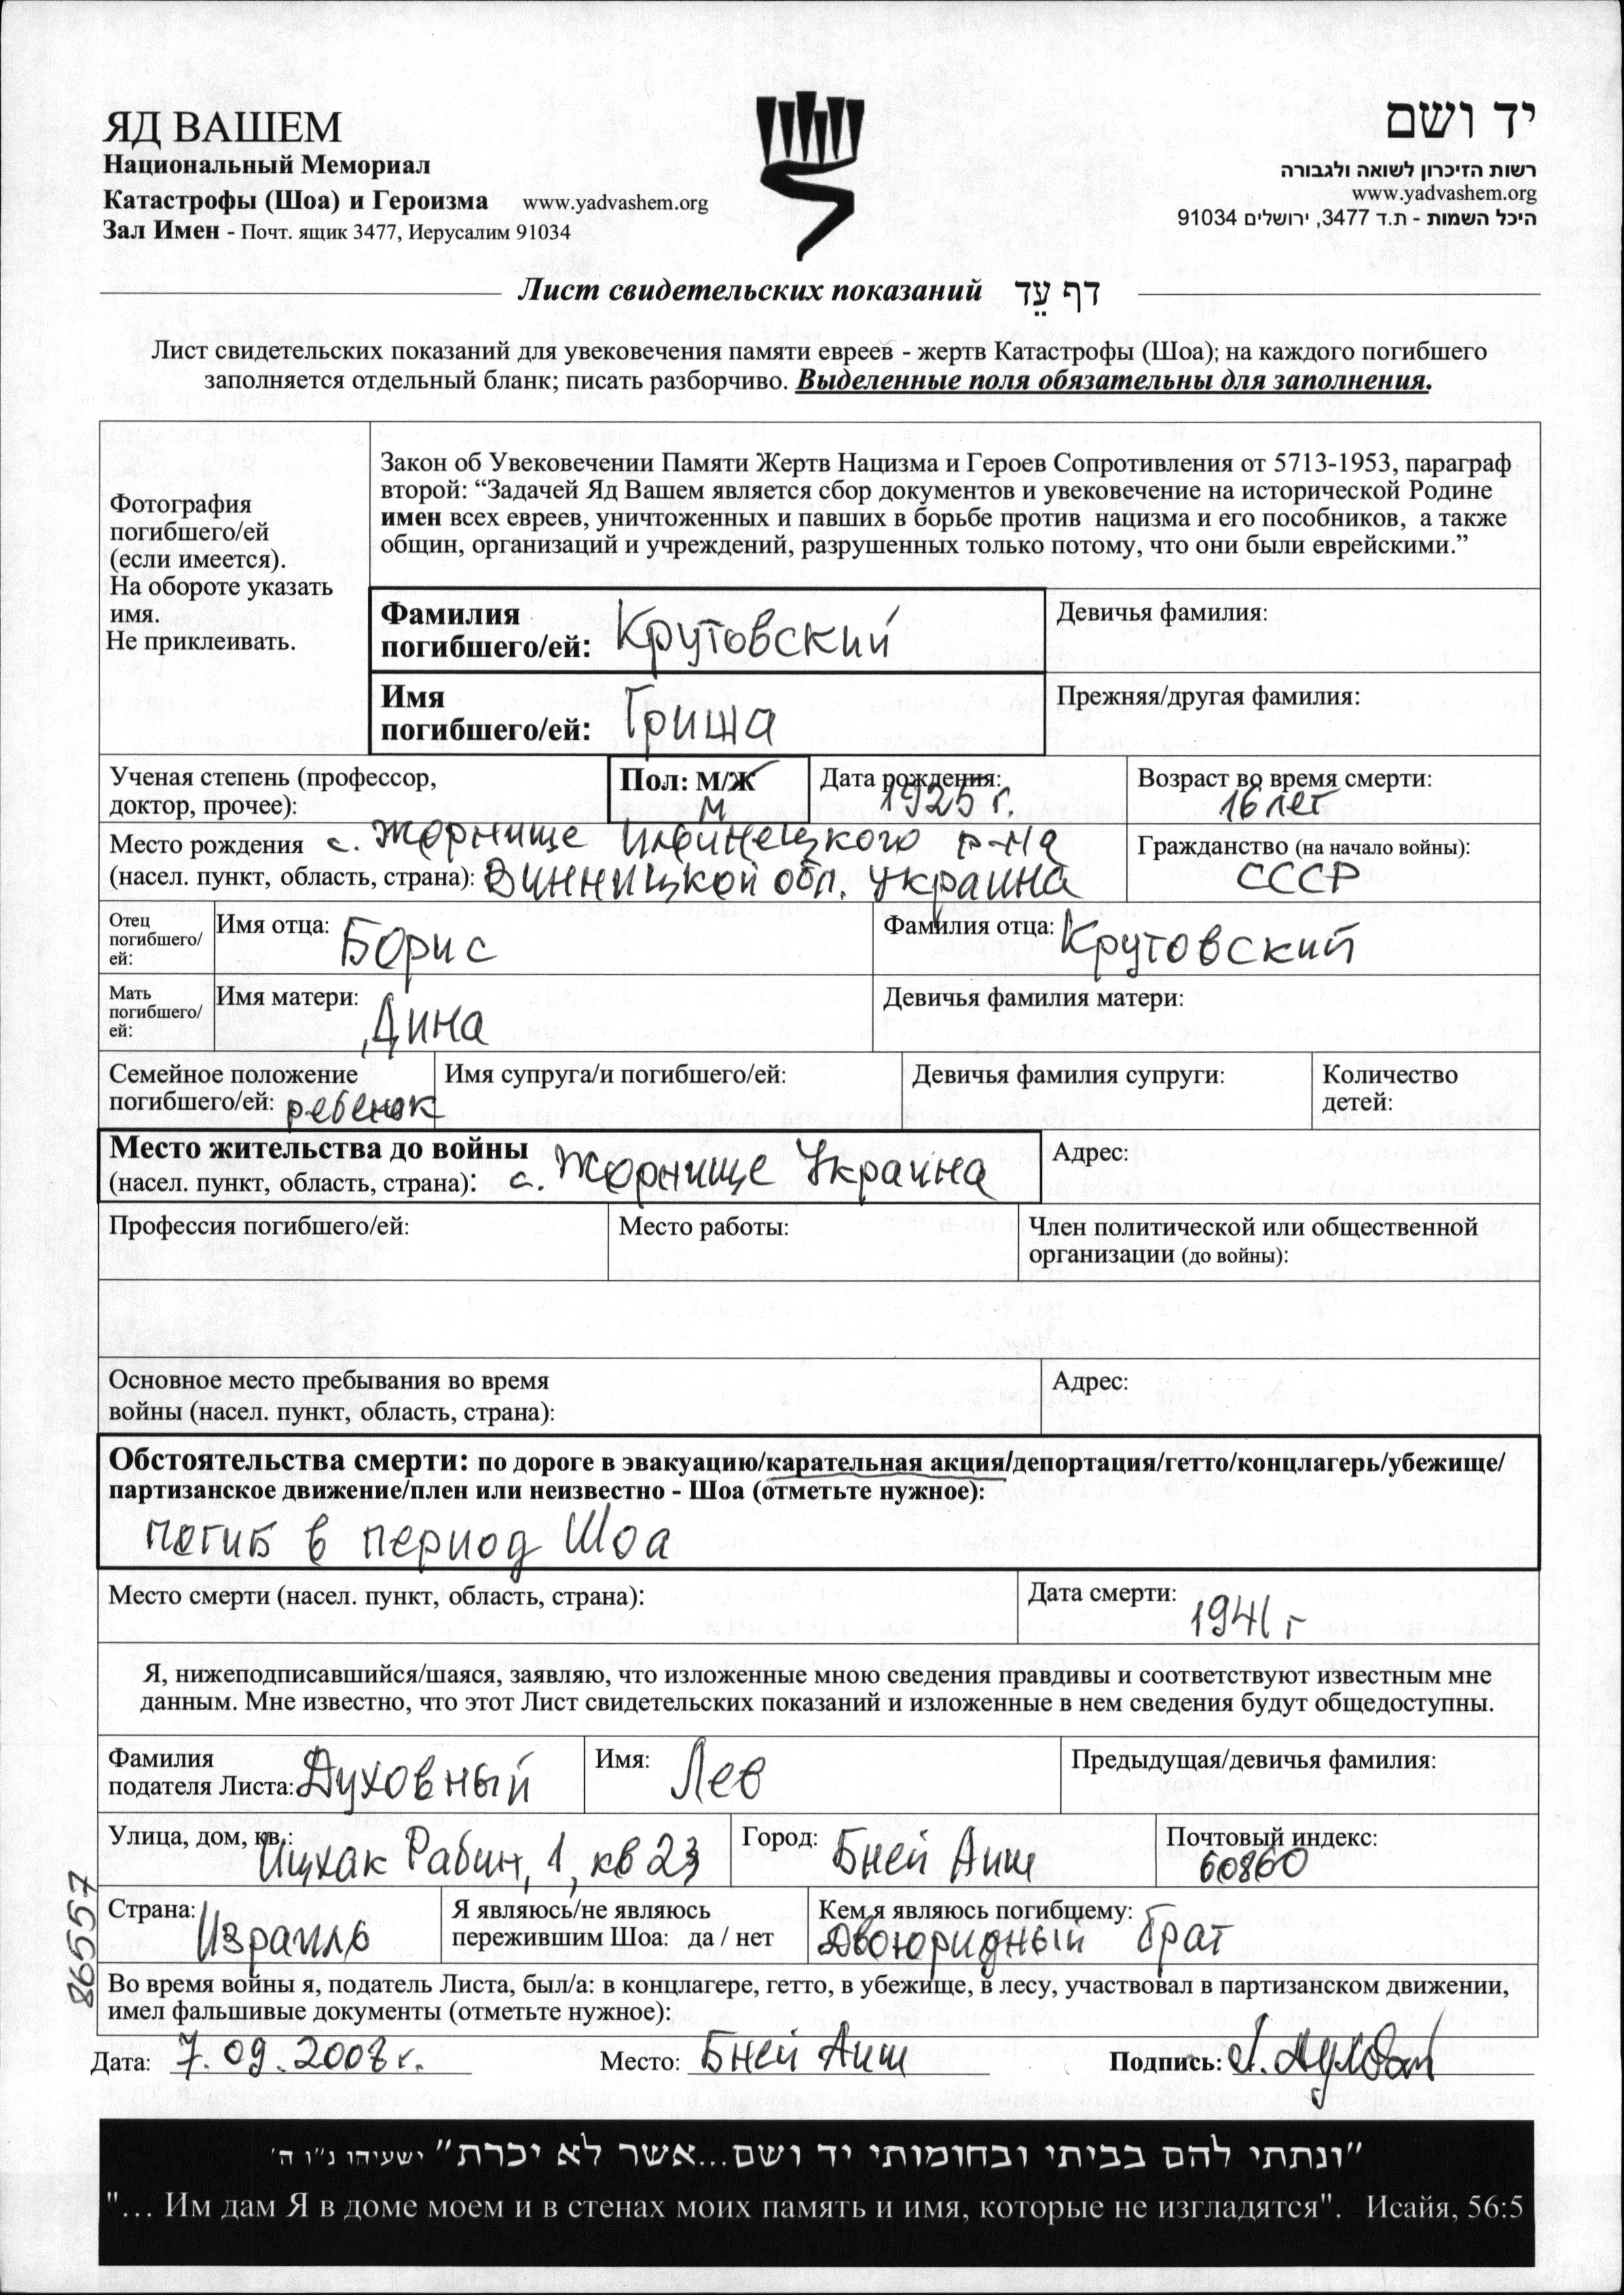 ЯД ВАШЕМ
Национальный Мемориал
Катастрофы (Шоа) и Героизма www.yadvashem.org
Зал Имен - Почт. ящик 3477, Иерусалим 91034
יד ושם
רשות הזיכרון לשואה ולגבורה
www.yadvashem.org
היכל השמות - ת.ד 3477, ירושלים 91034
Лист свидетельских показаний דף עֵד
Лист свидетельских показаний для увековечения памяти евреев - жертв Катастрофы (Шоа); на каждого погибшего
заполняется отдельный бланк; писать разборчиво. Выделенные поля обязательны для заполнения.
Фотография
погибшего/ей
(если имеется).
На обороте указать
имя.
Не приклеивать.
Закон об Увековечении Памяти Жертв Нацизма и Героев Сопротивления от 5713-1953, параграф
второй: “Задачей Яд Вашем является сбор документов и увековечение на исторической Родине
имен всех евреев, уничтоженных и павших в борьбе против нацизма и его пособников, а также
общин, организаций и учреждений, разрушенных только потому, что они были еврейскими.”
Фамилия
погибшего/ей: Крутовский
Девичья фамилия:
Имя
погибшего/ей: Гриша
Прежняя/другая фамилия:
Ученая степень (профессор,
доктор, прочее):
Пол: М/Ж
М
Дата рождения:
1925 г.
Возраст во время смерти:
16 лет
Место рождения с. Жорнище Ильинецкого р-на
(насел. пункт, область, страна): Винницкой обл. Украина
Гражданство (на начало войны):
СССР
Отец
погибшего/
ей:
Имя отца: Борис
Фамилия отца: Крутовский
Мать
погибшего/
ей:
Имя матери: Дина
Девичья фамилия матери:
Семейное положение
погибшего/ей: ребенок
Имя супруга/и погибшего/ей:
Девичья фамилия супруги:
Количество
детей:
Место жительства до войны
(насел. пункт, область, страна): с. Жорнище Украина
Адрес:
Профессия погибшего/ей:
Место работы:
Член политической или общественной
организации (до войны):
Основное место пребывания во время
войны (насел. пункт, область, страна):
Адрес:
Обстоятельства смерти: по дороге в эвакуацию/карательная акция/депортация/гетто/концлагерь/убежище/
партизанское движение/плен или неизвестно - Шоа (отметьте нужное):
погиб в период Шоа
Место смерти (насел. пункт, область, страна):
Дата смерти: 1941 г
Я, нижеподписавшийся/шаяся, заявляю, что изложенные мною сведения правдивы и соответствуют известным мне
данным. Мне известно, что этот Лист свидетельских показаний и изложенные в нем сведения будут общедоступны.
Фамилия
подателя Листа: Духовный
Имя: Лев
Предыдущая/девичья фамилия:
Улица, дом, кв.: Ицхак Рабин, 1, кв 23
Город: Бней Аиш
Почтовый индекс:
60860
Страна: Израиль
Я являюсь/не являюсь
пережившим Шоа: да / нет
Кем я являюсь погибшему:
Двоюридный брат
Во время войны я, податель Листа, был/а: в концлагере, гетто, в убежище, в лесу, участвовал в партизанском движении,
имел фальшивые документы (отметьте нужное):
865557
Дата: 7.09.2008 г. Место: Бней Аиш Подпись:
"ונתתי להם בביתי ובחומותי יד ושם...אשר לא יכרת" ישעיהו נ"ו ה'
"... Им дам Я в доме моем и в стенах моих память и имя, которые не изгладятся". Исайя, 56:5